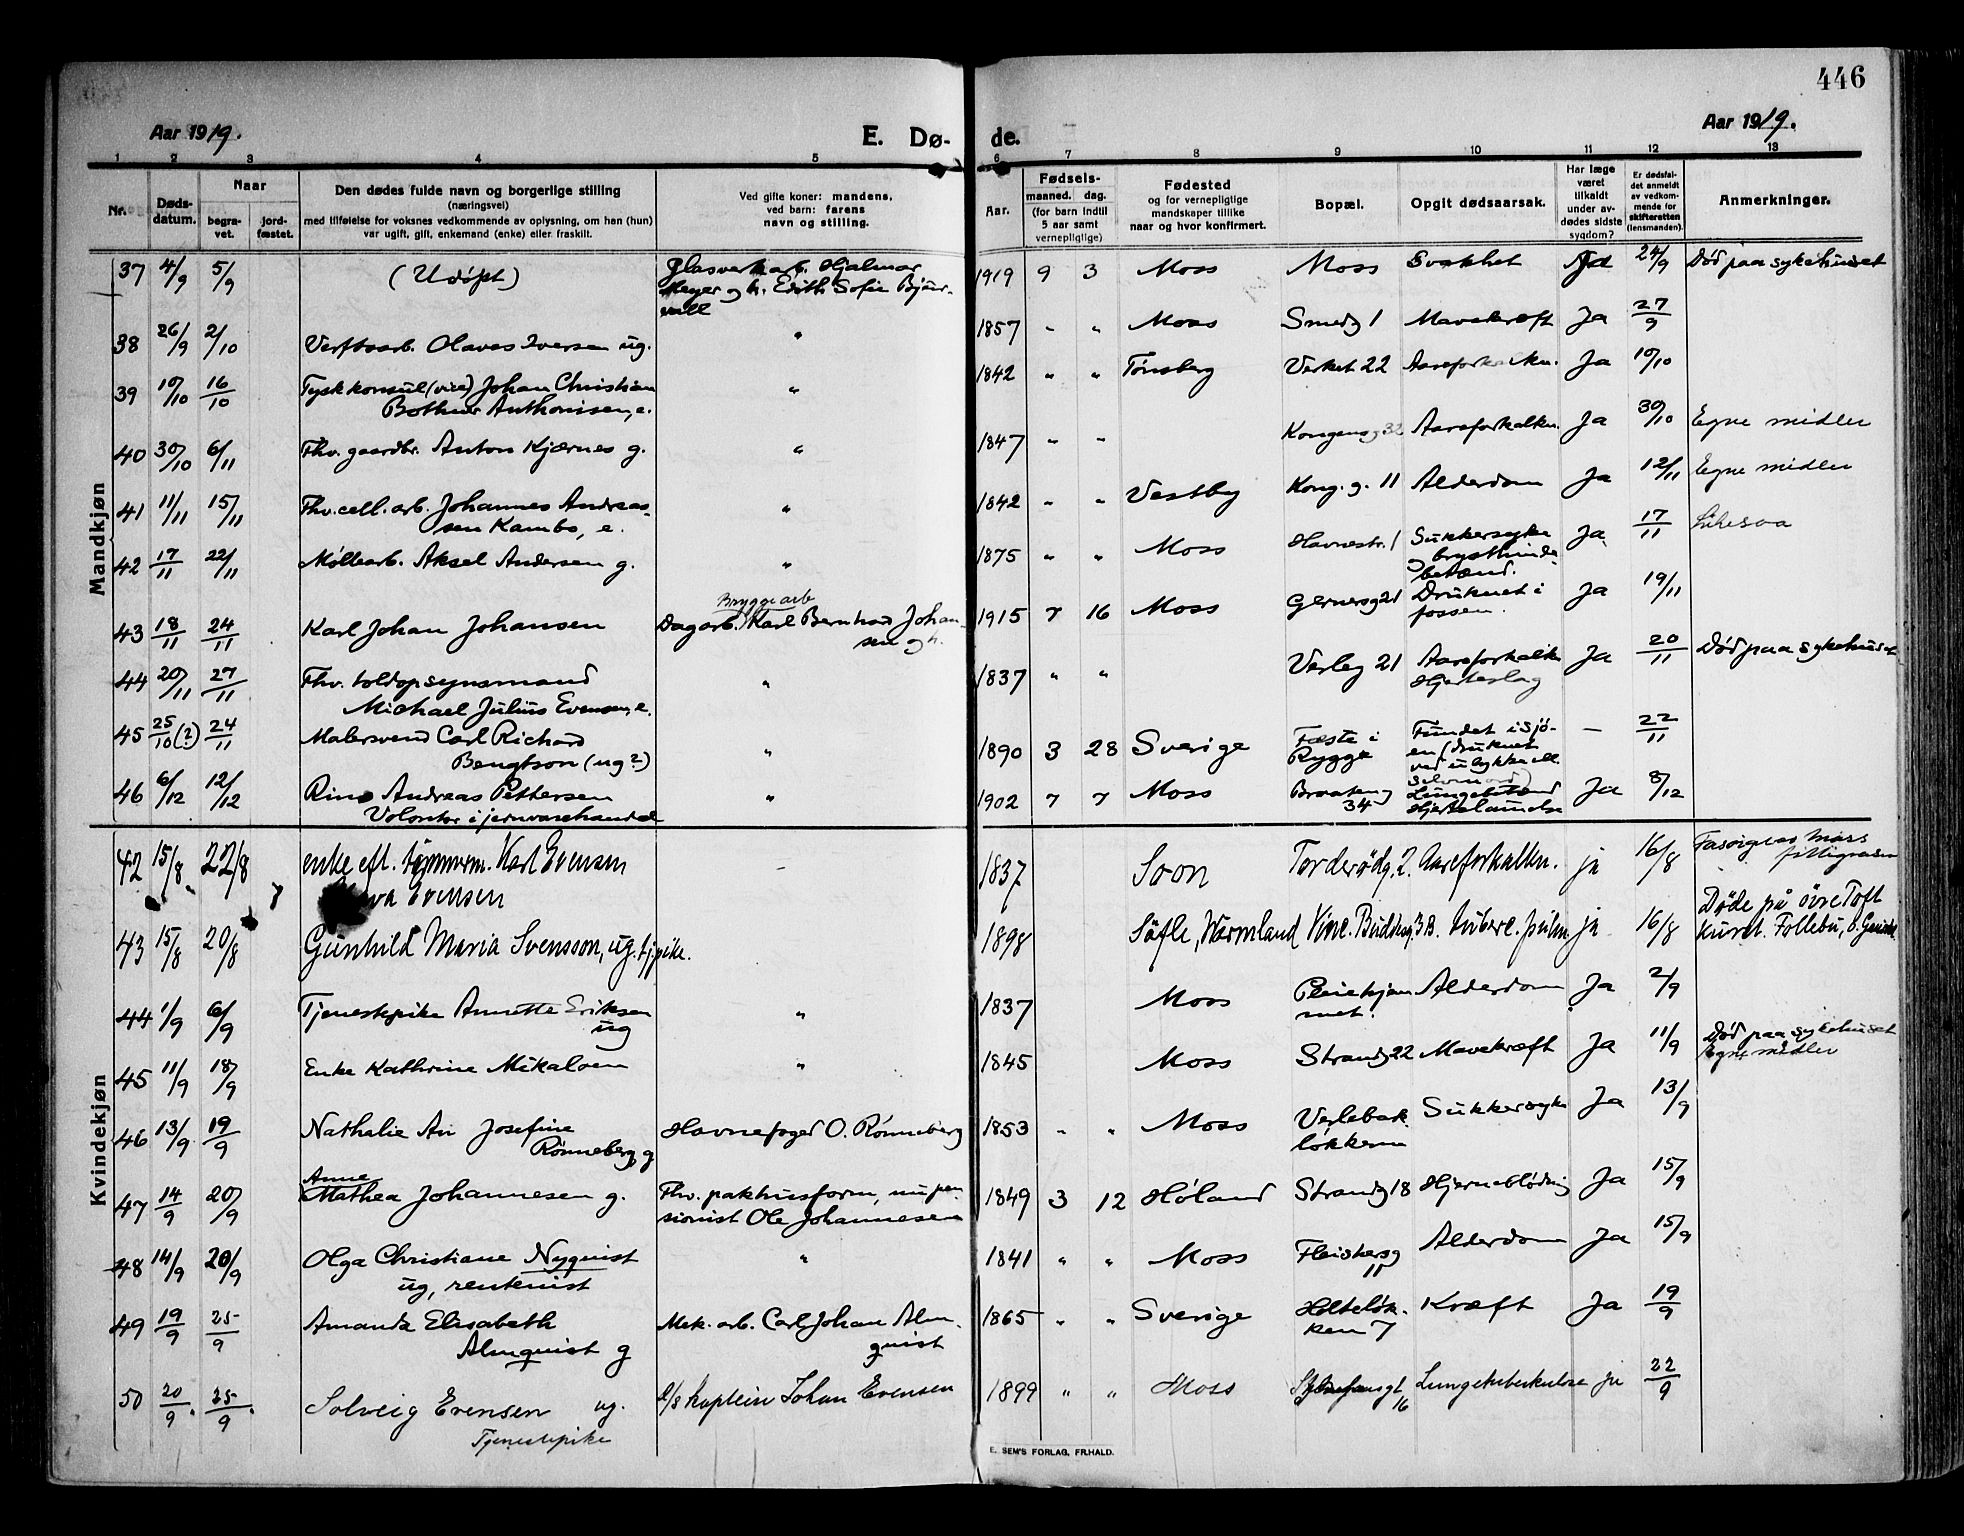 446
Aar 1919.
E. Dø-
de.
Aar 1919.
1 2 3 4 5 6 7 8 9 10 11 12 13
Nr.
Døds-
datum.
Naar
begra-
vet.
jord-
fæstet.
Den dødes fulde navn og borgerlige stilling
(næringsvei)
med tilføielse for voksnes vedkommende av oplysning, om han (hun)
var ugift, gift, enkemand (enke) eller fraskilt.
Ved gifte koner: mandens,
ved barn: farens
navn og stilling.
Aar.
Fødsels-
maaned. dag.
(for barn indtil
5 aar samt
vernepligtige)
Fødested
og for vernepligtige
mandskaper tillike
naar og hvor konfirmert.
Bopæl.
Opgit dødsaarsak.
Har læge
været
tilkaldt
under av-
dødes sidste
sygdom?
Er dødsfal-
det anmeldt
av vedkom-
mende for
skifteretten
(lensmanden).
Anmerkninger.
Mandkjøn
37 4/9 5/9 (Udøpt) Glasverkarb. Hjalmar 1919 9 3 Moss Moss Svakhet Ja 24/9 Død paa sykehuset
Meyer og h. Edith Sofie Bjür-
vall
38 26/9 2/10 Verftsarb. Olaves Iversen ug. " 1857 " " Moss Smedg 1 Mavekræft Ja 27/9
39 10/10 16/10 Tysk konsul (vice) Johan Christian " 1842 " " Tønsberg Verket 22 Aareforkalkn. Ja 10/10
Bothner Anthonisen, e.
40 30/10 6/11 Fhv. gaardbr. Anton Kjærnes g. " 1847 " " Kongensg 32 Aareforkalkn. Ja 30/10 Egne midler
41 11/11 15/11 Fhv. cell. arb. Johannes Andreas- " 1842 " " Vestby Kong. g. 11 Alderdom Ja 12/11 Egne midler
sen Kambo, e.
42 17/11 22/11 Møllearb. Aksel Andersen g. " 1875 " " Moss Havnestr. 1 Sukkersyke Ja 17/11 Likesaa
og brysthinde
betænd.
43 18/11 24/11 Karl Johan Johansen Bryggearb
Dagarb. Karl Bernhard Johan- 1915 7 16 Moss Gernersg 21 Druknet i Ja 19/11
sen og h. fossen.
44 20/11 27/11 Fhv. toldopsynsmand " 1837 " " Verleg 21 Aareforkalk Ja 20/11 Død paa sykehuset
Michael Julius Evensen, e. Hjerteslag
45 25/10 (?) 24/11 Malersvend Carl Richard " 1890 3 28 Sverige Fæste i Fundet i sjö- — 22/11
Bengtson (ug?) Rygge en (druknet
ved ulykke ell.
selvmord)
46 6/12 12/12 Andreas Pettersen " 1902 7 7 Moss Braateng Lungebetænd Ja 8/12
Volontør i jernvarehandel 34 Hjertelammelse
Kvindekjøn
42 15/8 22/8 enke eft. tømmerm. Karl Evensen - 1837 Soon Torderødg. 2. Aareforkalkn. ja 16/8
Evensen
43 15/8 20/8 Gunhild Maria Svensson, ug. tj.pike. 1898 Säfle, Wärmland Vinc. Buddesg. 3B. Tuberc. pulm ja 16/8 Døde på øvre Toft
kurst. Follebu, ö. Gausdal
44 1/9 6/9 Tjenestepike Annette Eriksen " 1837 Moss Pleiehjem Alderdom Ja 2/9
ug met.
45 11/9 18/9 Enke Kathrine Mikalsen " 1845 Moss Strandg 22 Mavekræft Ja 11/9 Død paa sykehuset
Egne midler
46 13/9 19/9 Nathalie Josefine Havnefoged O. Rønneberg 1853 " " Moss Verlebak Sukkersyke Ja 13/9
Rønneberg, g løkken
47 14/9 20/9 Anne
Mathea Johannesen g. Fhv. pakhusform, nu pen- 1849 3 12 Høland Strandg 18 Hjerneblødnig Ja 15/9
sionist Ole Johannesen
48 14/9 20/9 Olga Christiane Nyquist " 1841 " " Moss Fleischersg Alderdom Ja 15/9
ug, rentenist 11
49 19/9 25/9 Amanda Elisabeth Mek. arb. Carl Johan Alm- 1865 " " Sverige Holteløk- Kræft Ja 19/9
Almquist g quist ken 7
50 20/9. 25/9. Solveig Evensen ug. D/S kaptein Johan Evensen 1899 " " Moss Lungetuberkulose ja 22/9
Tjenestepike 16
E. SEM'S FORLAG, FR.HALD.